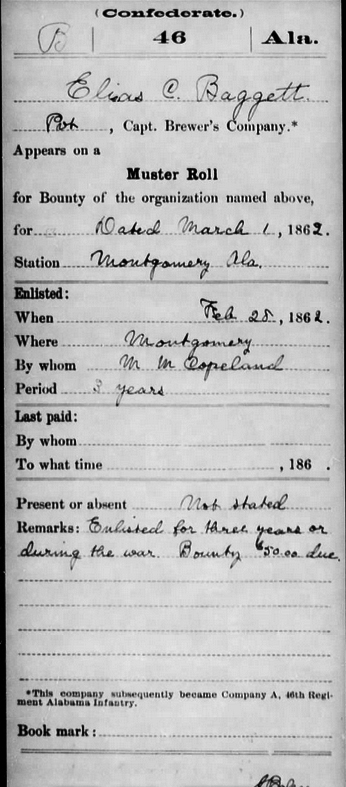 (Confederate.)
B | 46 | Ala.
Elias C. Baggett.
Pvt, Capt. Brewer's Company.*
Appears on a
Muster Roll
for Bounty of the organization named above,
for Dated March 1, 1862.
Station Montgomery Ala.
Enlisted:
When Feb 28, 1862.
Where Montgomery
By whom M M Copeland
Period 3 years
Last paid:
By whom
To what time , 186 .
Present or absent Not stated
Remarks: Enlisted for three years or
during the war. Bounty $50.00 due.
*This company subsequently became Company A, 46th Regi-
ment Alabama Infantry.
Book mark: